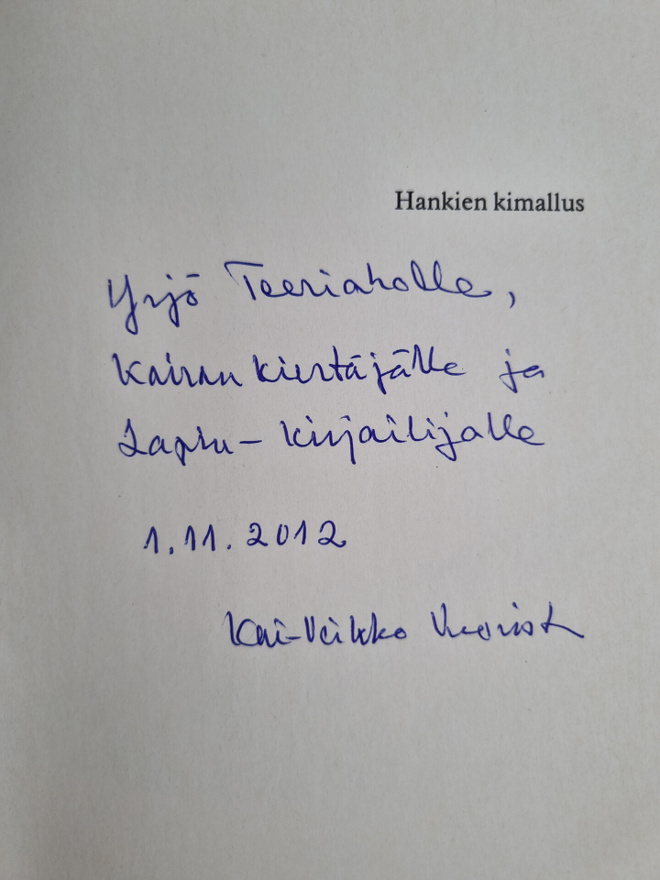 Hankien kimallus
Yrjö Teeriaholle,
Kairan kiertäjälle ja
Lapin-kirjailijalle
1.11.2012
Kai-Veikko Vuoristo